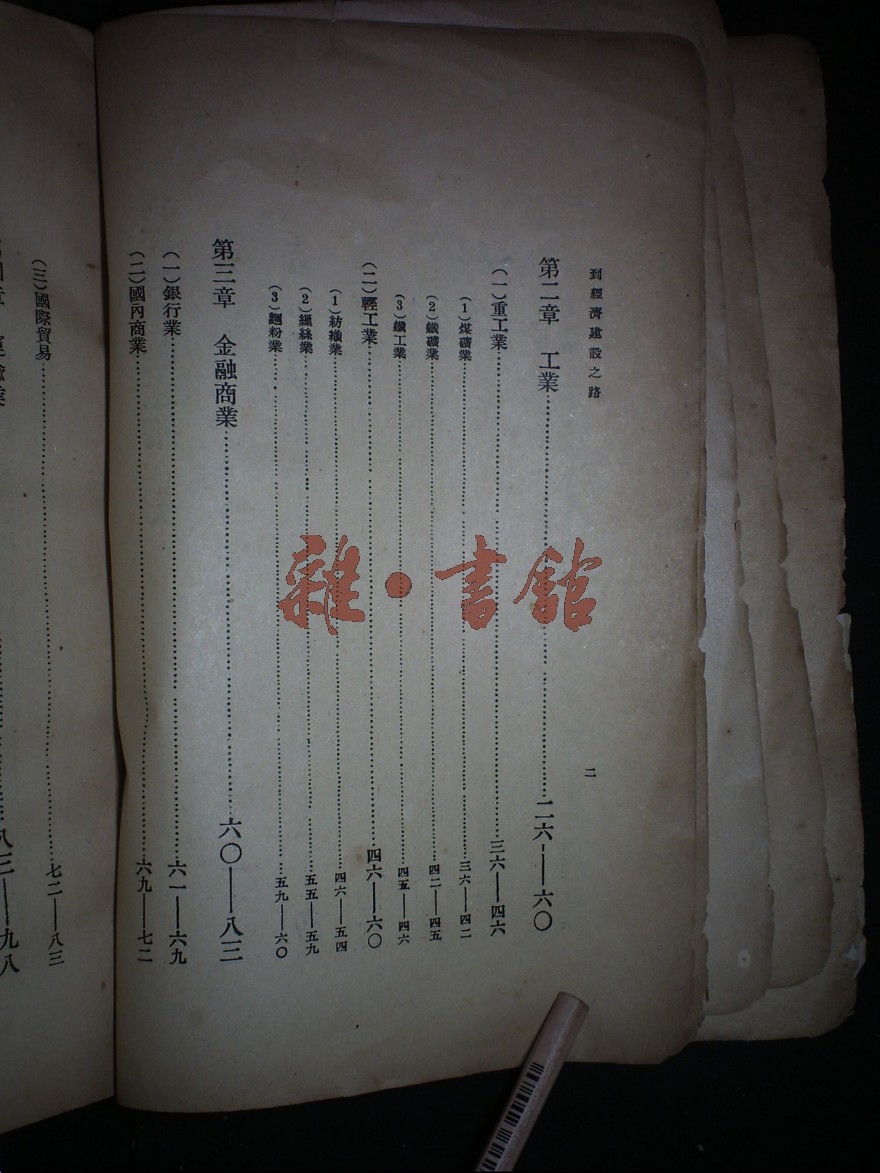 到經濟建設之路
二
第二章　工業……二六——六〇
(一)重工業……三六——四六
(1)煤礦業……三六——四二
(2)鐵礦業……四二——四五
(3)鐵工業……四五——四六
(二)輕工業……四六——六〇
(1)紡織業……四六——五四
(2)繅絲業……五五——五九
(3)麵粉業……五九——六〇
第三章　金融商業……六〇——八三
(一)銀行業……六一——六九
(二)國內商業……六九——七二
(三)國際貿易……七二——八三
八三——九八
雜·書館